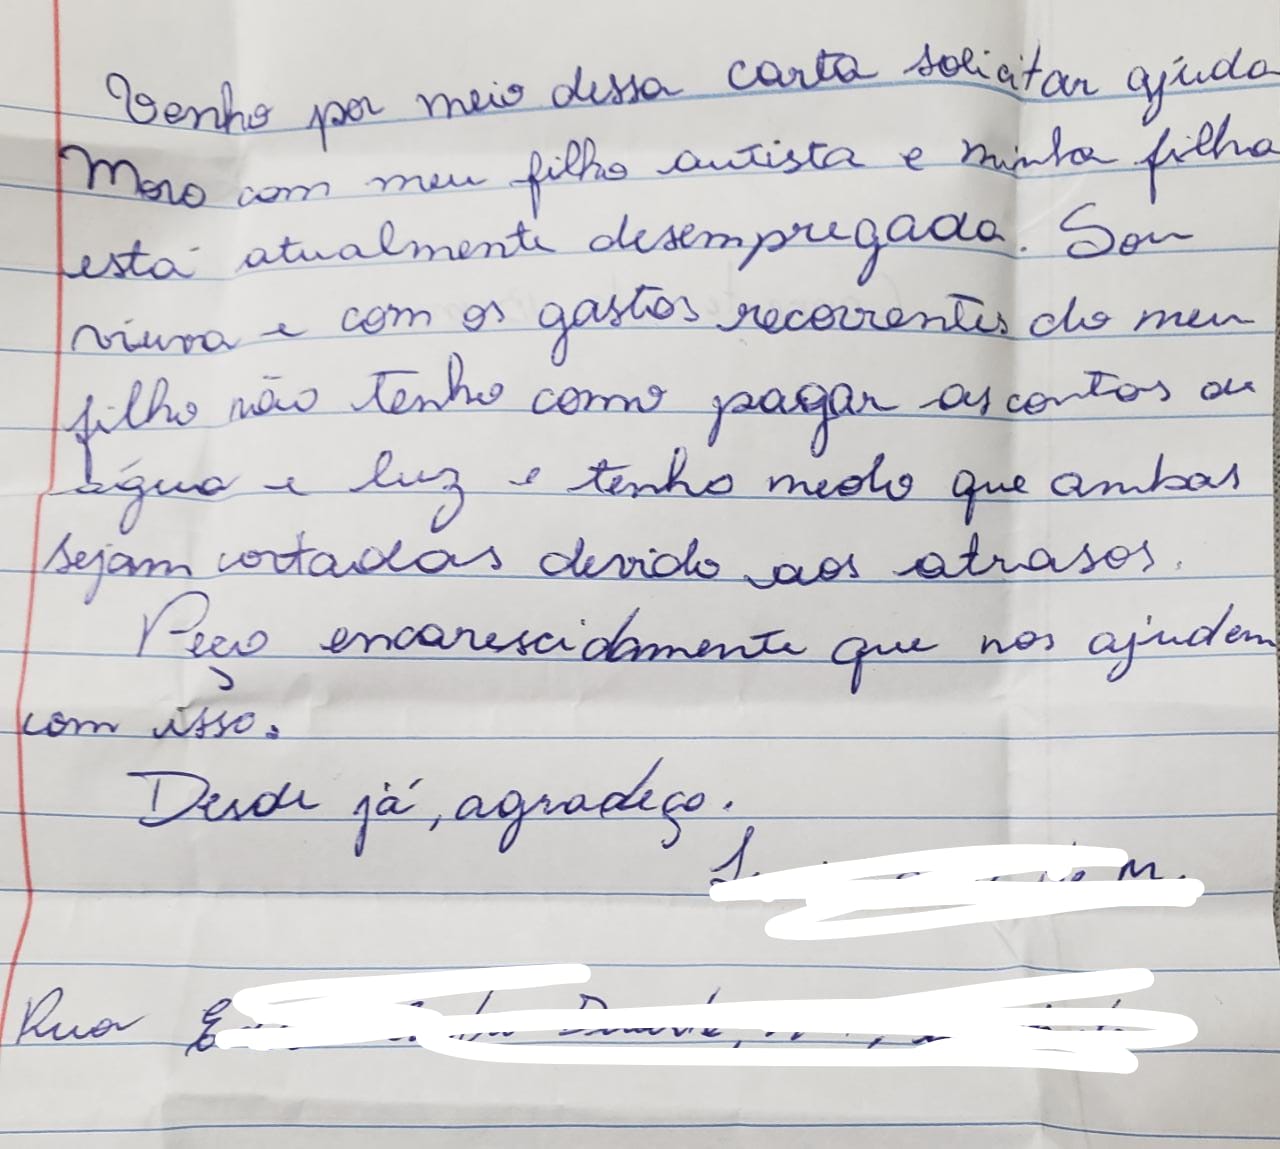 Venho por meio dessa carta solicitar ajuda
Moro com meu filho autista e minha filha
está atualmente desempregada. Sou
viuva e com os gastos recorrentes do meu
filho não tenho como pagar as contas de
água e luz e tenho medo que ambas
sejam cortadas devido aos atrasos.
Peço encarescidamente que nos ajudem
com isso.
Desde já, agradeço.
Rua